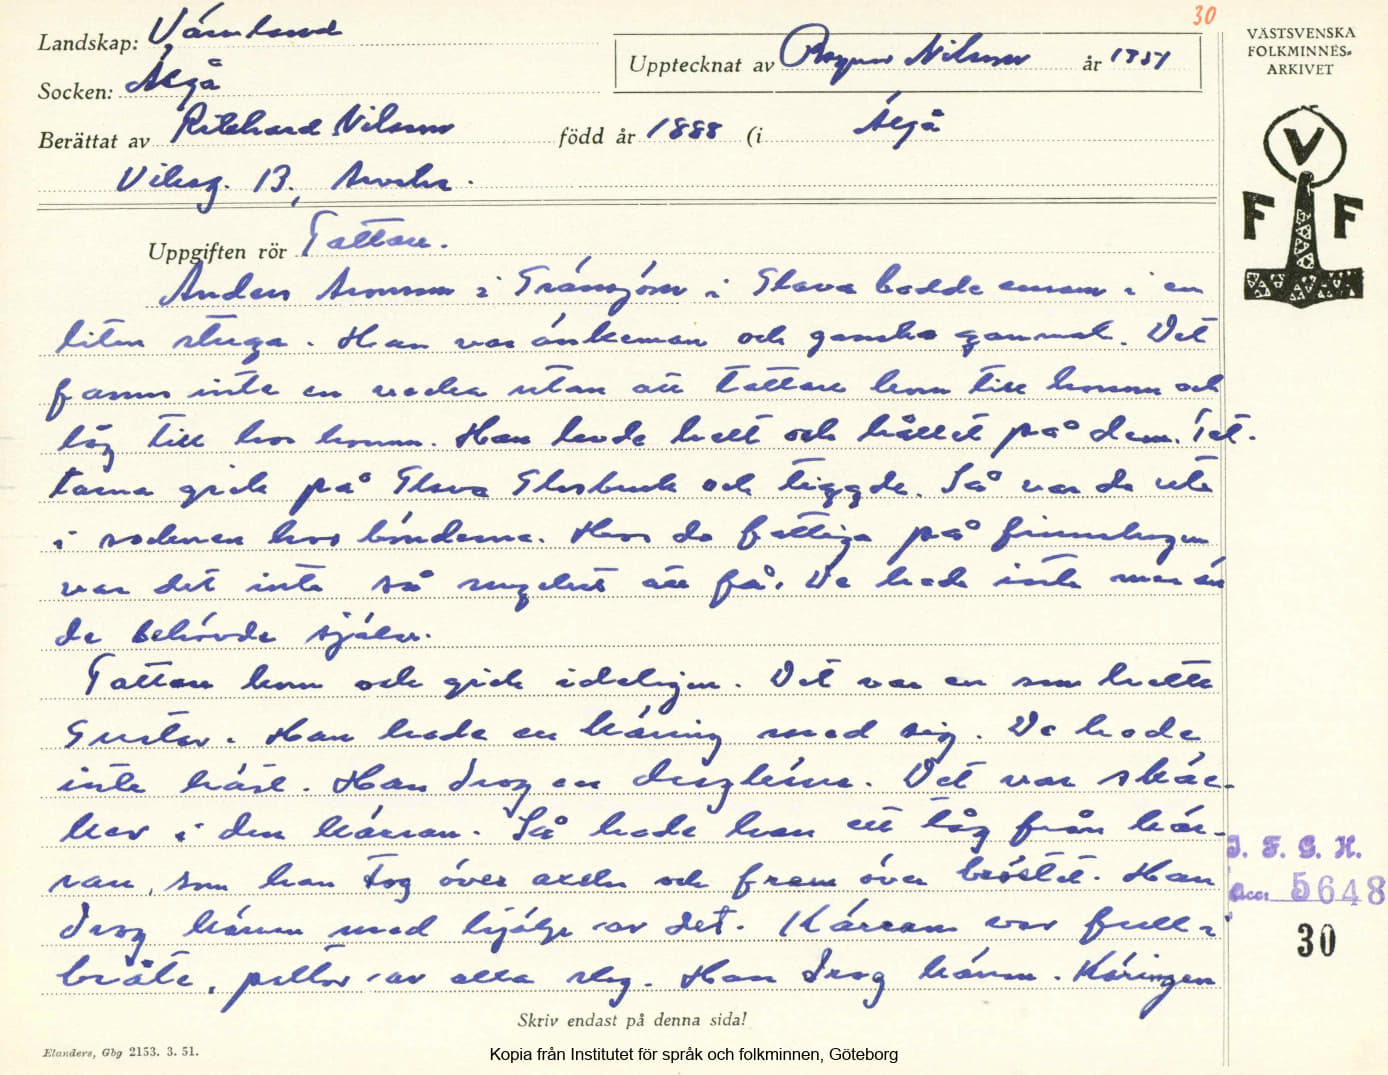 30
Landskap: Värmland
VÄSTSVENSKA
FOLKMINNES-
ARKIVET
Upptecknat av Ragnar Nilsson år 1951
Socken: Älgå
Berättat av Richard Nilsson född år 1888 (i Älgå
Viksg. 13, Arvika.
V
F F
Uppgiften rör Tattare.
Anders Aronsson i Tränsjön i Glava bodde ensam i en
liten stuga. Han var änkeman och ganska gammal. Det
fanns inte en vecka utan att tattare kom till honom och
låg till hos honom. Han levde helt och hållet på dem. Tat-
tarna gick på Glava Glasbruk och tiggde. Så var de ute
i socknen hos bönderna. Hos de fattiga på finnskogen
var det inte så mycket att få. De hade inte mer än
de behövde själva.
Tattare kom och gick ideligen. Det var en som hette
Gustav. Han hade en käring med sig. De hade
inte häst. Han drog en dragkärra. Det var skäc-
klar i den kärran. Så hade han ett tåg från kär-
ran, som han tog över axeln och fram över bröstet. Han
drog kärran med hjälp av det. Kärran var full i
bråte, paltor av alla slag. Han drog kärran. Käringen
I. F. G. H.
Acc. 5648
30
Skriv endast på denna sida!
Elanders, Gbg 2153. 3. 51.
Kopia från Institutet för språk och folkminnen, Göteborg